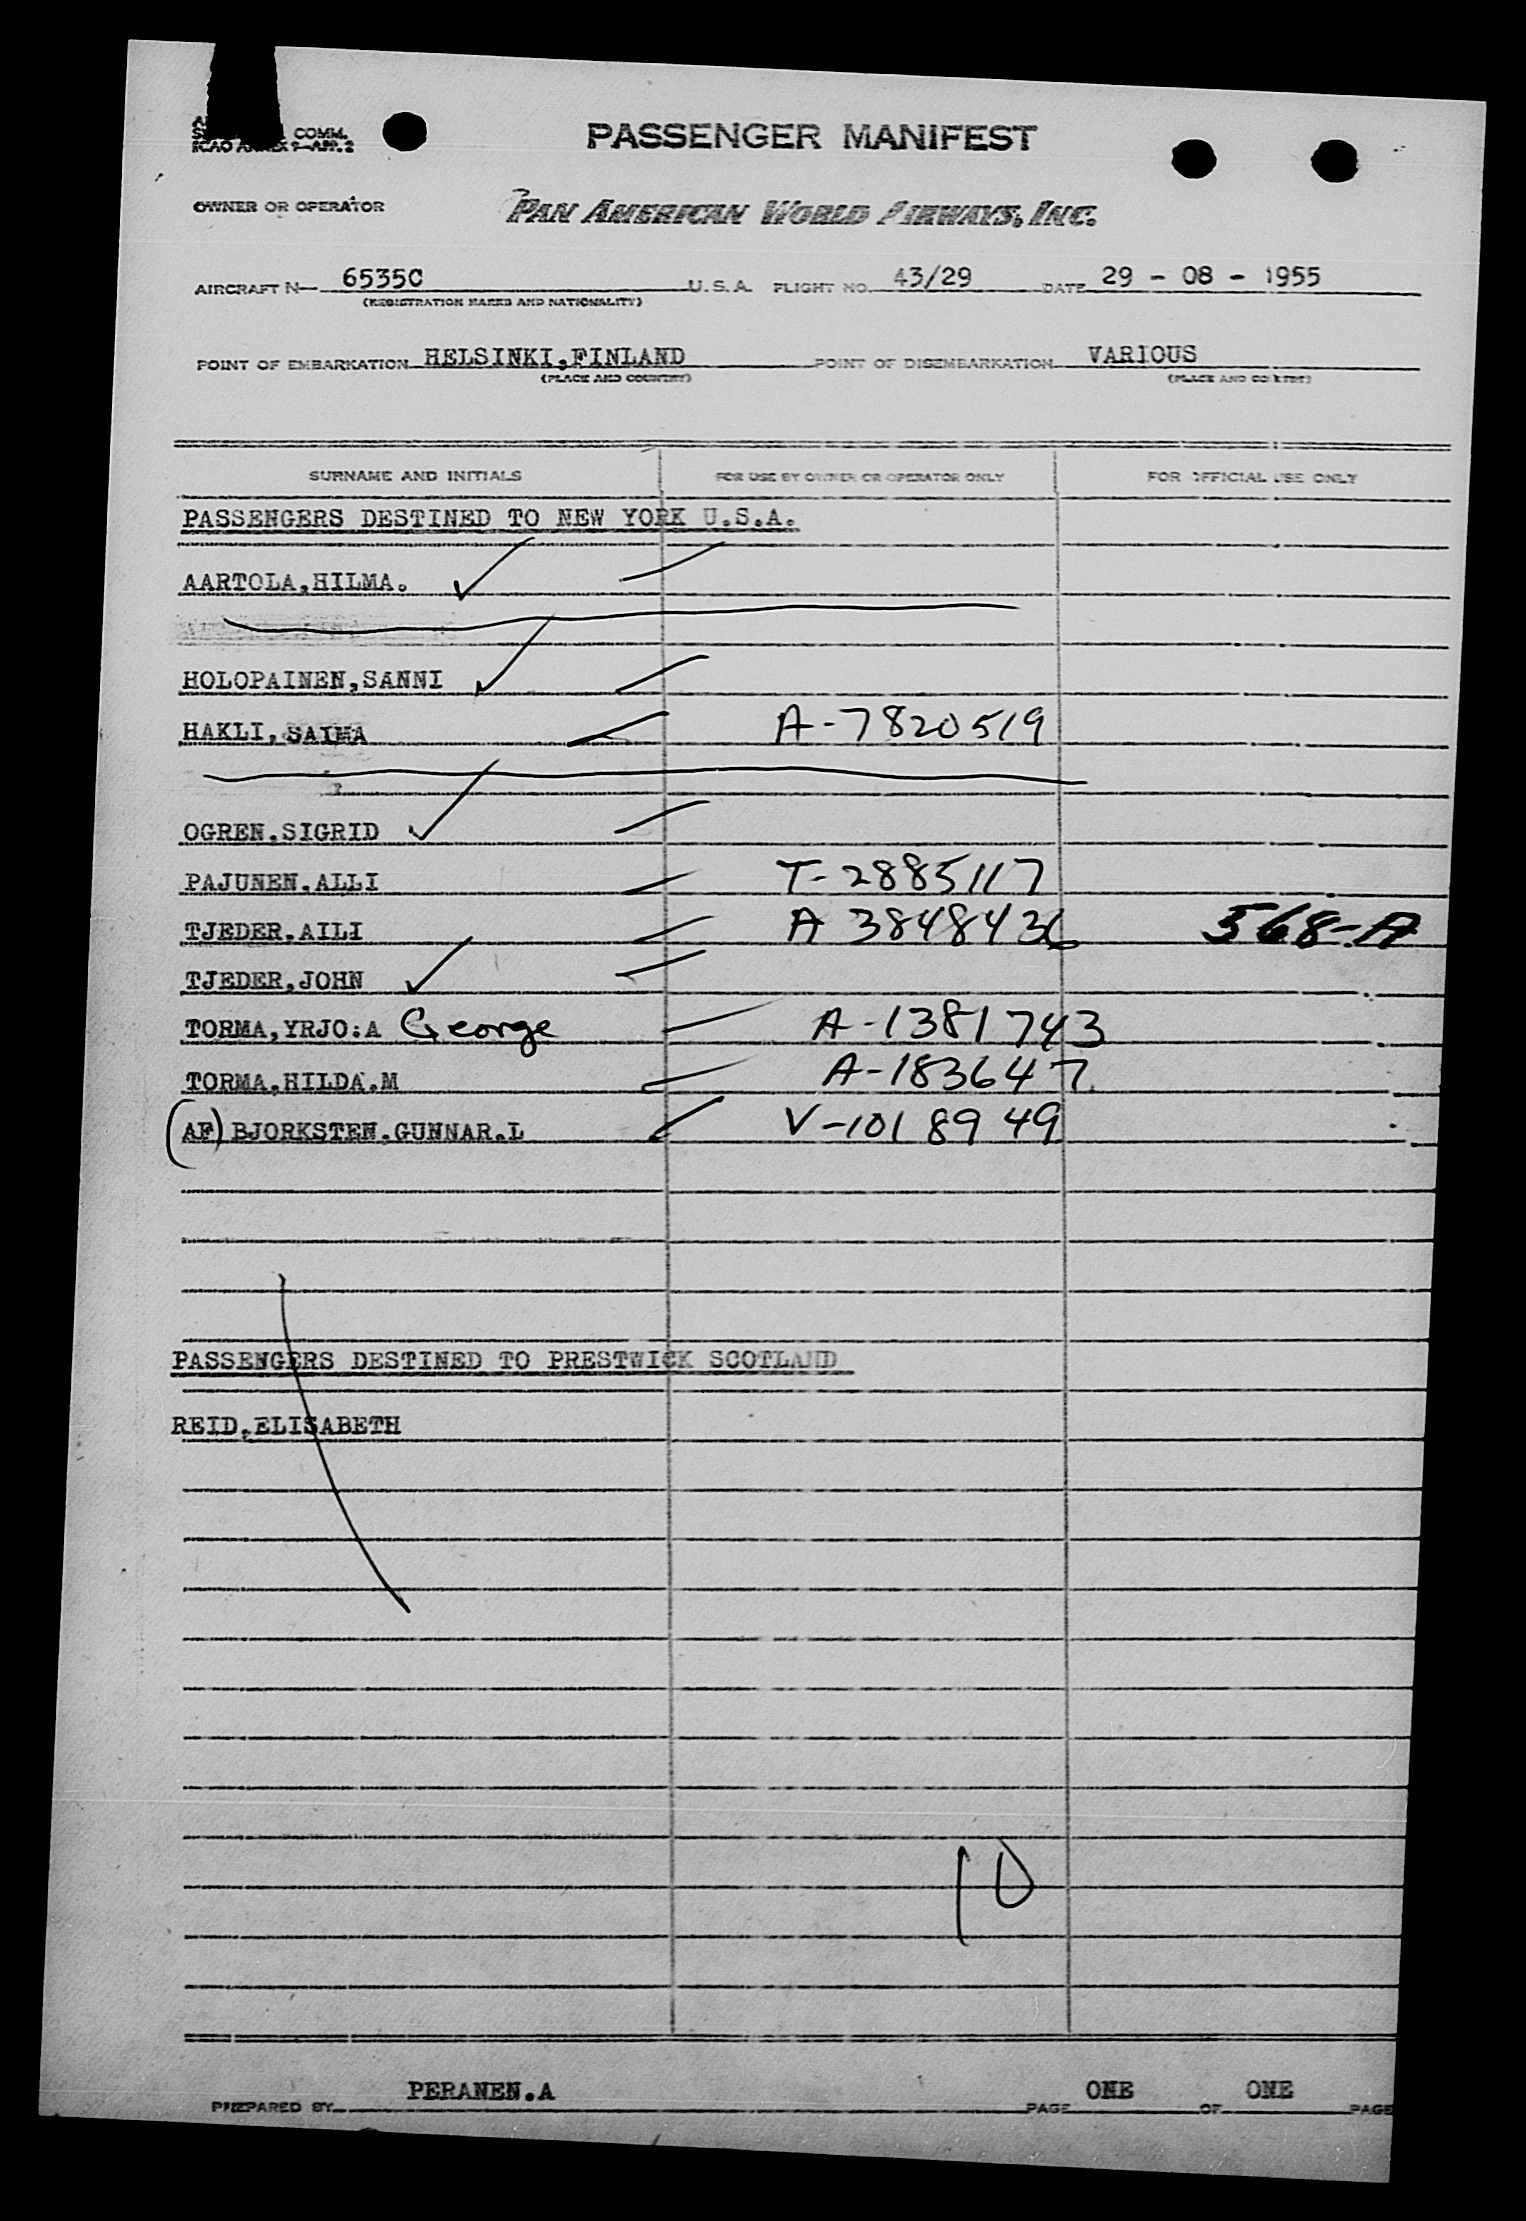 COMM.
ICAO ANNEX 9-APP. 2
PASSENGER MANIFEST
OWNER OR OPERATOR PAN AMERICAN WORLD AIRWAYS, INC.
AIRCRAFT N— 6535C U.S.A. FLIGHT NO. 43/29 DATE 29 - 08 - 1955
(REGISTRATION MARKS AND NATIONALITY)
POINT OF EMBARKATION HELSINKI,FINLAND POINT OF DISEMBARKATION VARIOUS
(PLACE AND COUNTRY) (PLACE AND COUNTRY)
SURNAME AND INITIALS FOR USE BY OWNER OR OPERATOR ONLY FOR OFFICIAL USE ONLY
PASSENGERS DESTINED TO NEW YORK U.S.A.
AARTOLA,HILMA.
HOLOPAINEN,SANNI
HAKLI,SAIMA A-7820519
OGREN.SIGRID
PAJUNEN.ALLI T-2885117
TJEDER.AILI A 3848436 568-A
TJEDER,JOHN
TORMA,YRJO:A George A-1381743
TORMA,HILDA.M A-183647
(AF) BJORKSTEN.GUNNAR.L V-1018949
PASSENGERS DESTINED TO PRESTWICK SCOTLAND
REID.ELISABETH
10
PREPARED BY PERANEN.A PAGE ONE OF ONE PAGE